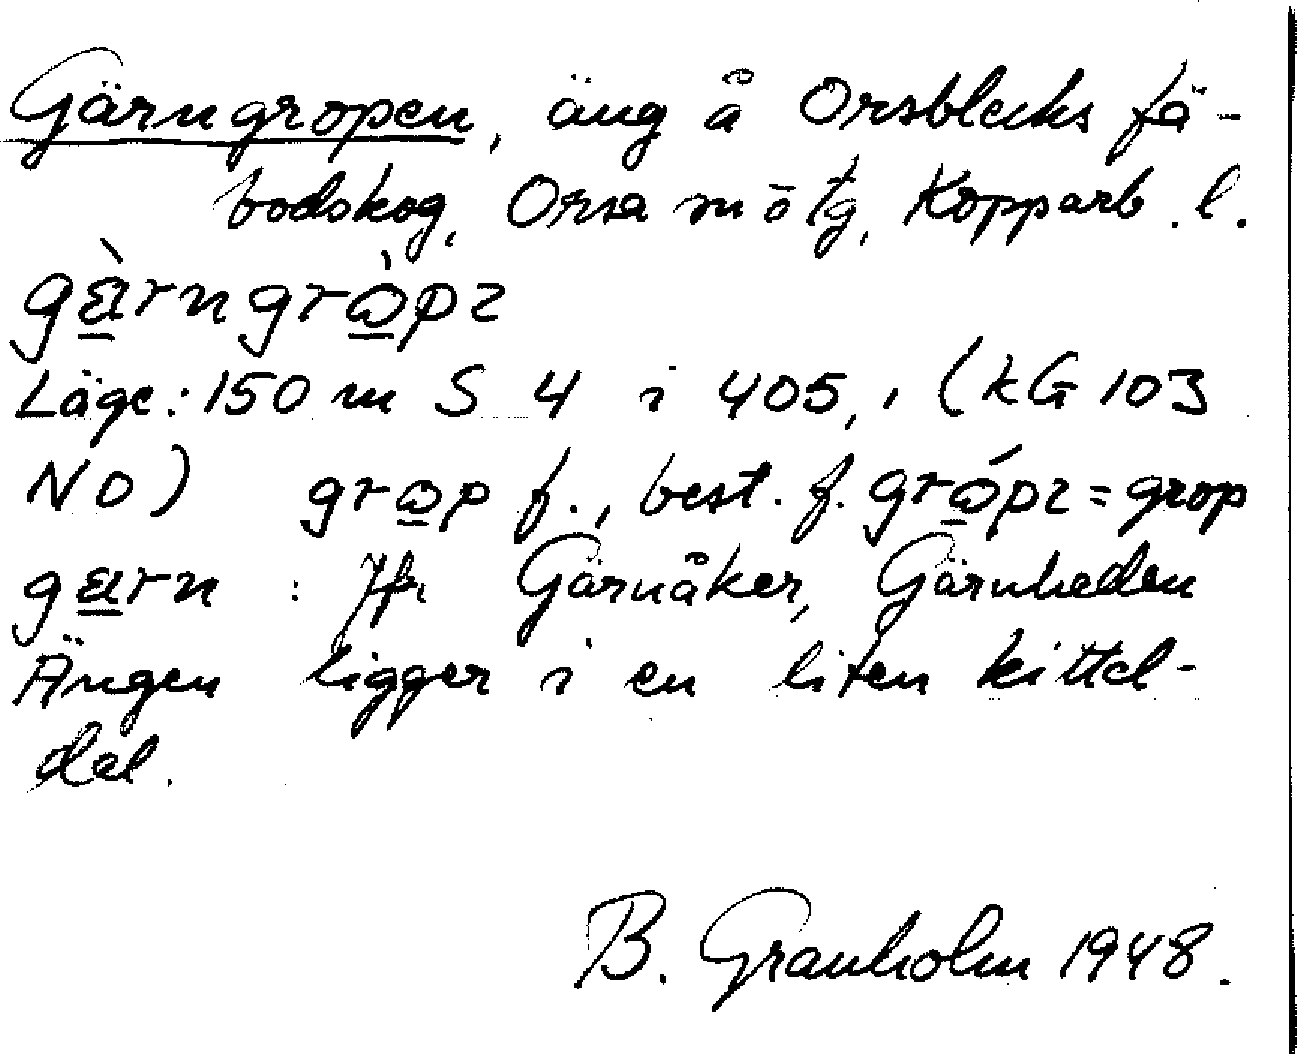 Gärngropen, äng å Orsblecks fä-
bodskog, Orsa mötg, Kopparb. l.
gàrngròpɿ
Läge: 150 m S 4 i 405, , (kG 103
NO) grɷp f., best. f. grɷ́pɿ = grop
garn : Jfr Gärnåker, Gärnheden
Ängen ligger i en liten kittel-
dal.
B. Granholm 1948.